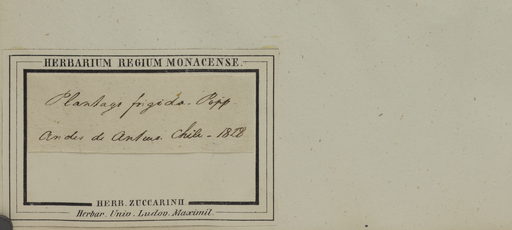 HERBARIUM REGIUM MONACENSE.
Plantago frigida. Pöpp.
Andes de Antuco. Chile - 1828
HERB. ZUCCARINII
Herbar. Univ. Ludov. Maximil.